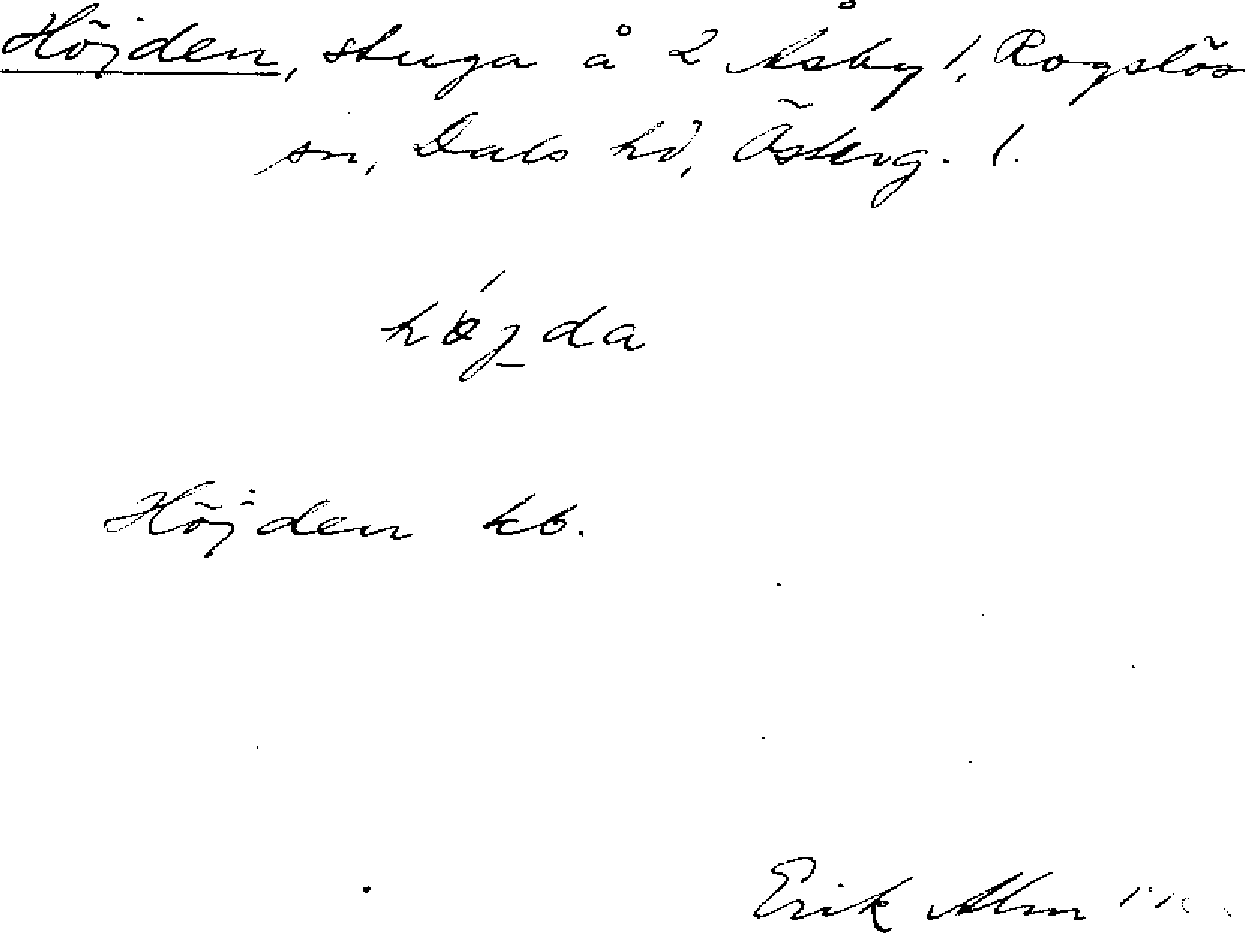 Höjden, stuga å 2 Åsby 1, Rogslös
sn, Dals hd, Österg. l.
Höjden kb.
Erik Alm